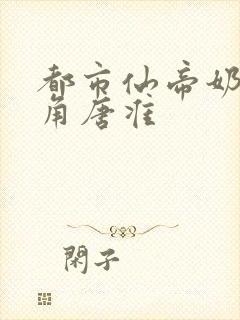 都市仙帝奶
角唐淮
閑子